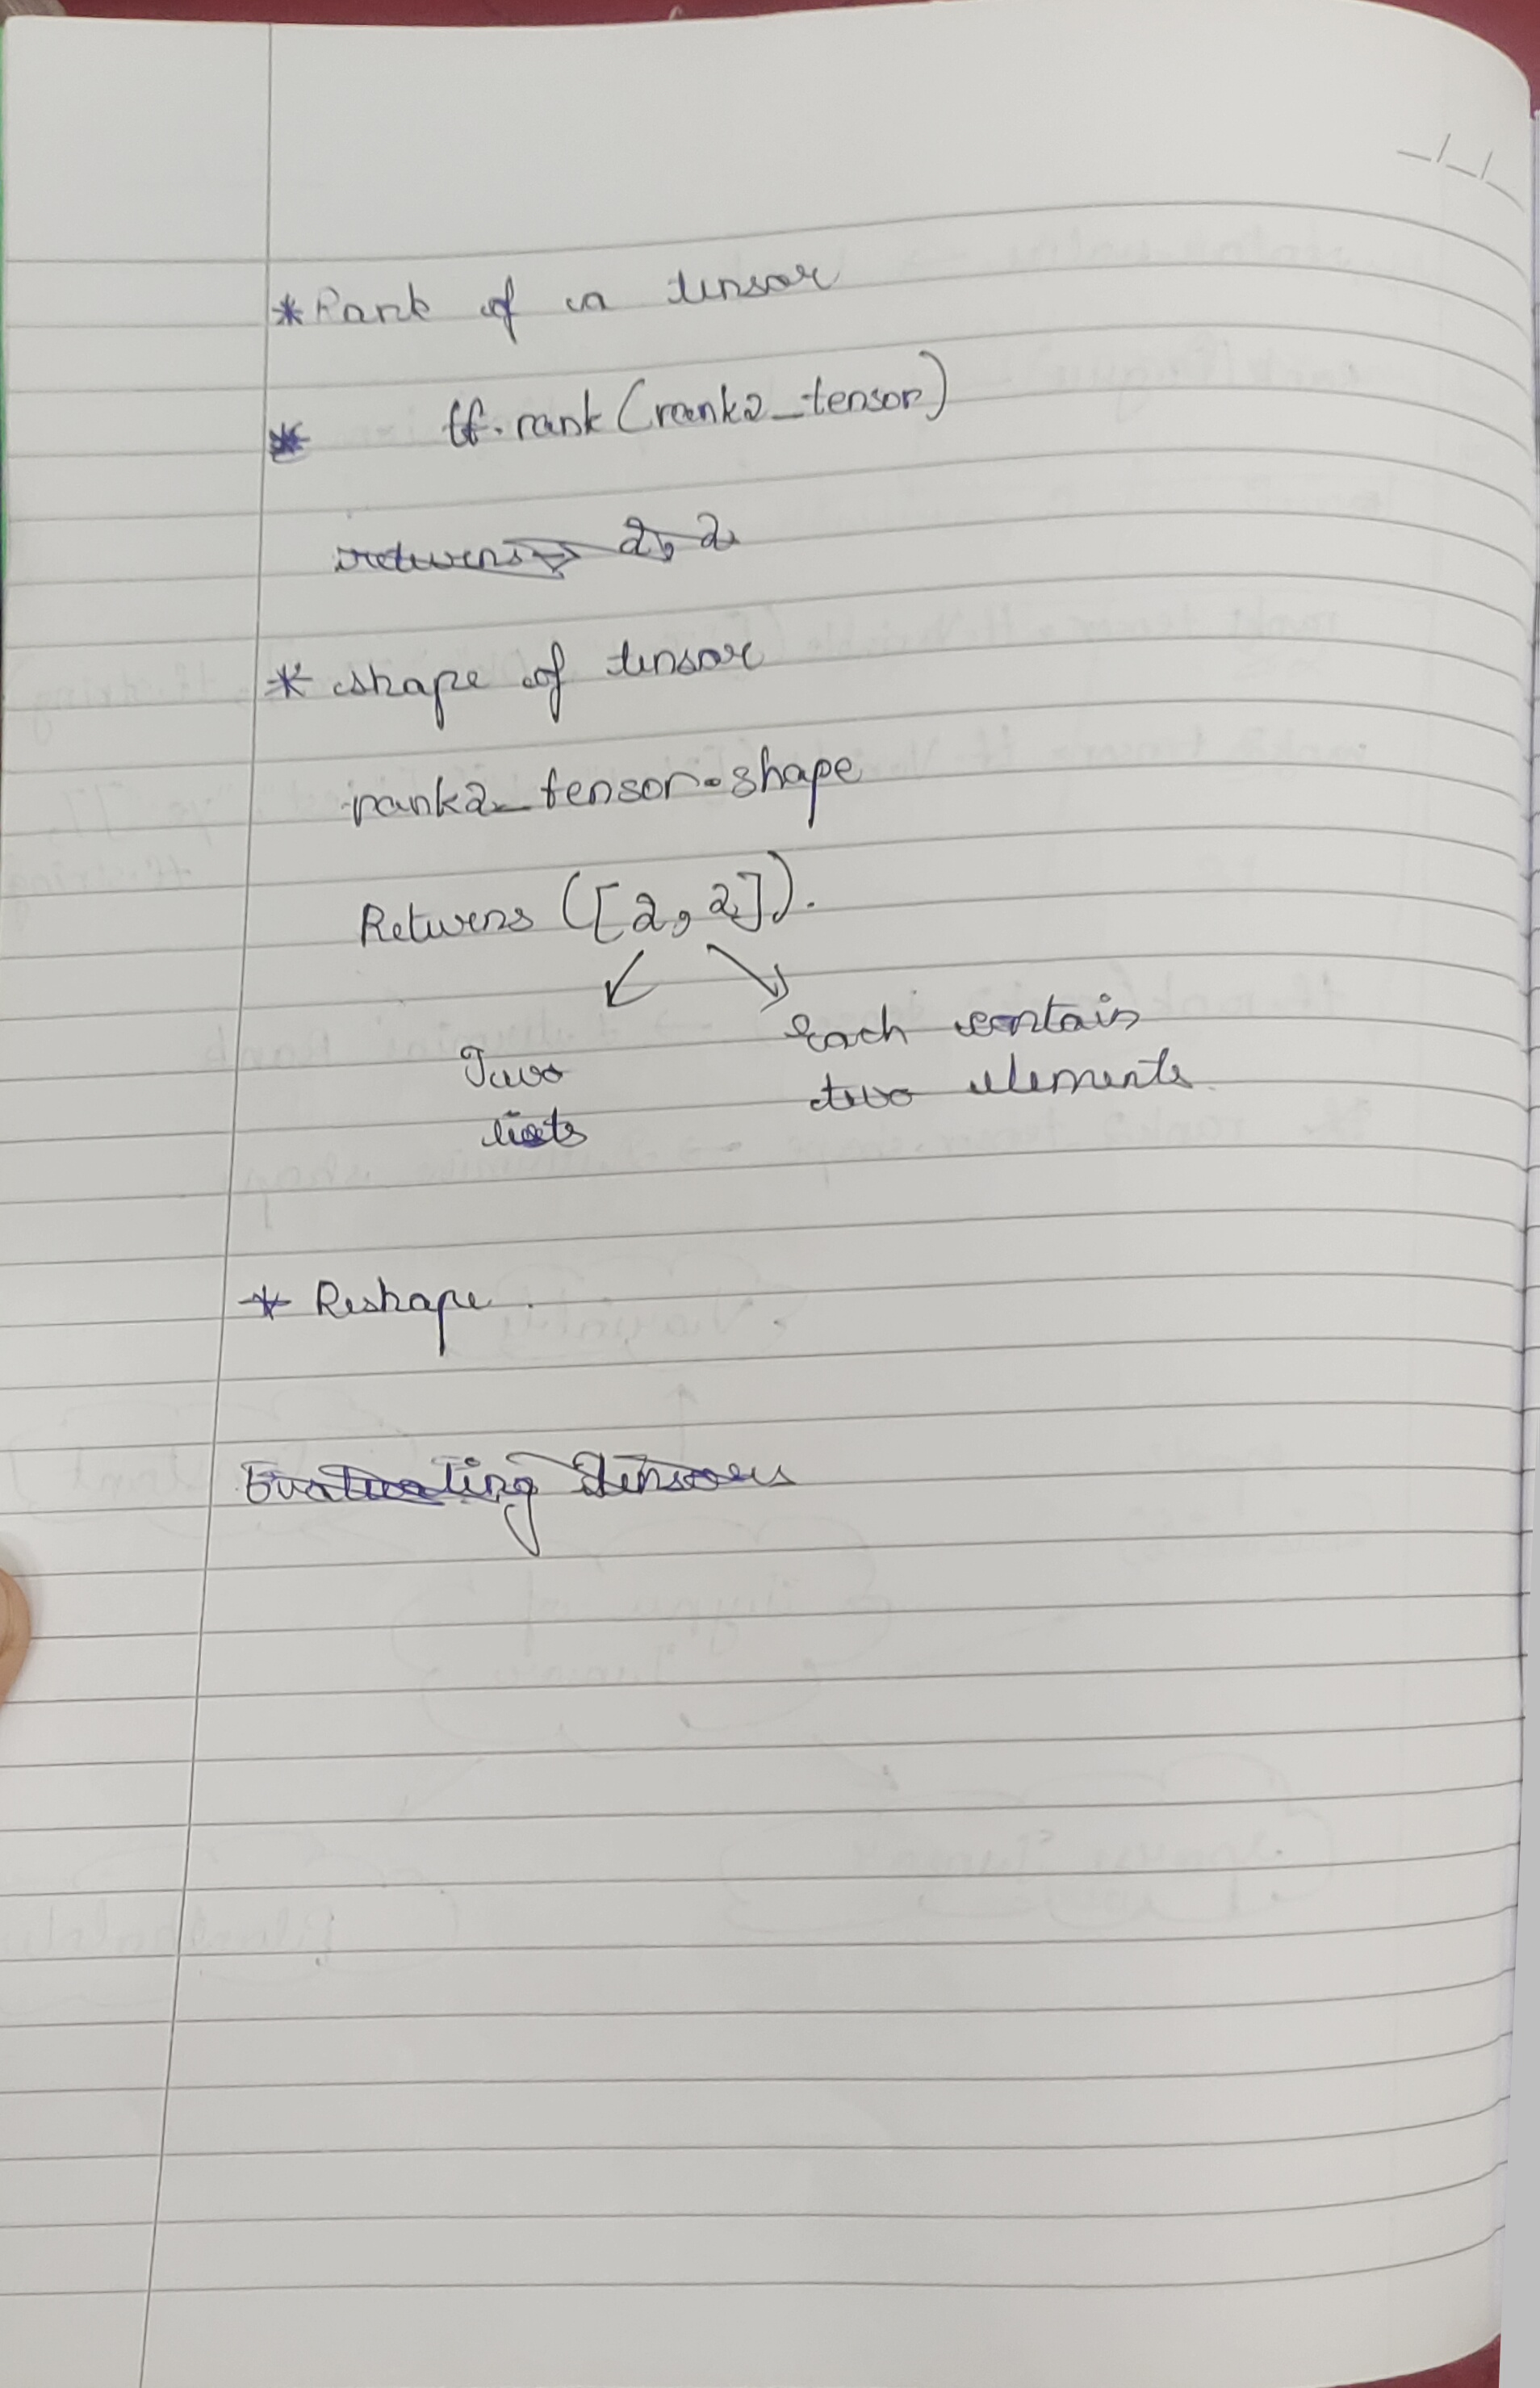 * Rank of a tensor
* tf.rank (rank2_tensor)
returns → 2, 2
* shape of tensor
rank2_tensor.shape
Returns ([2, 2]).
Two lists
Each contain
two elements
* Reshape.
Evaluating Tensors